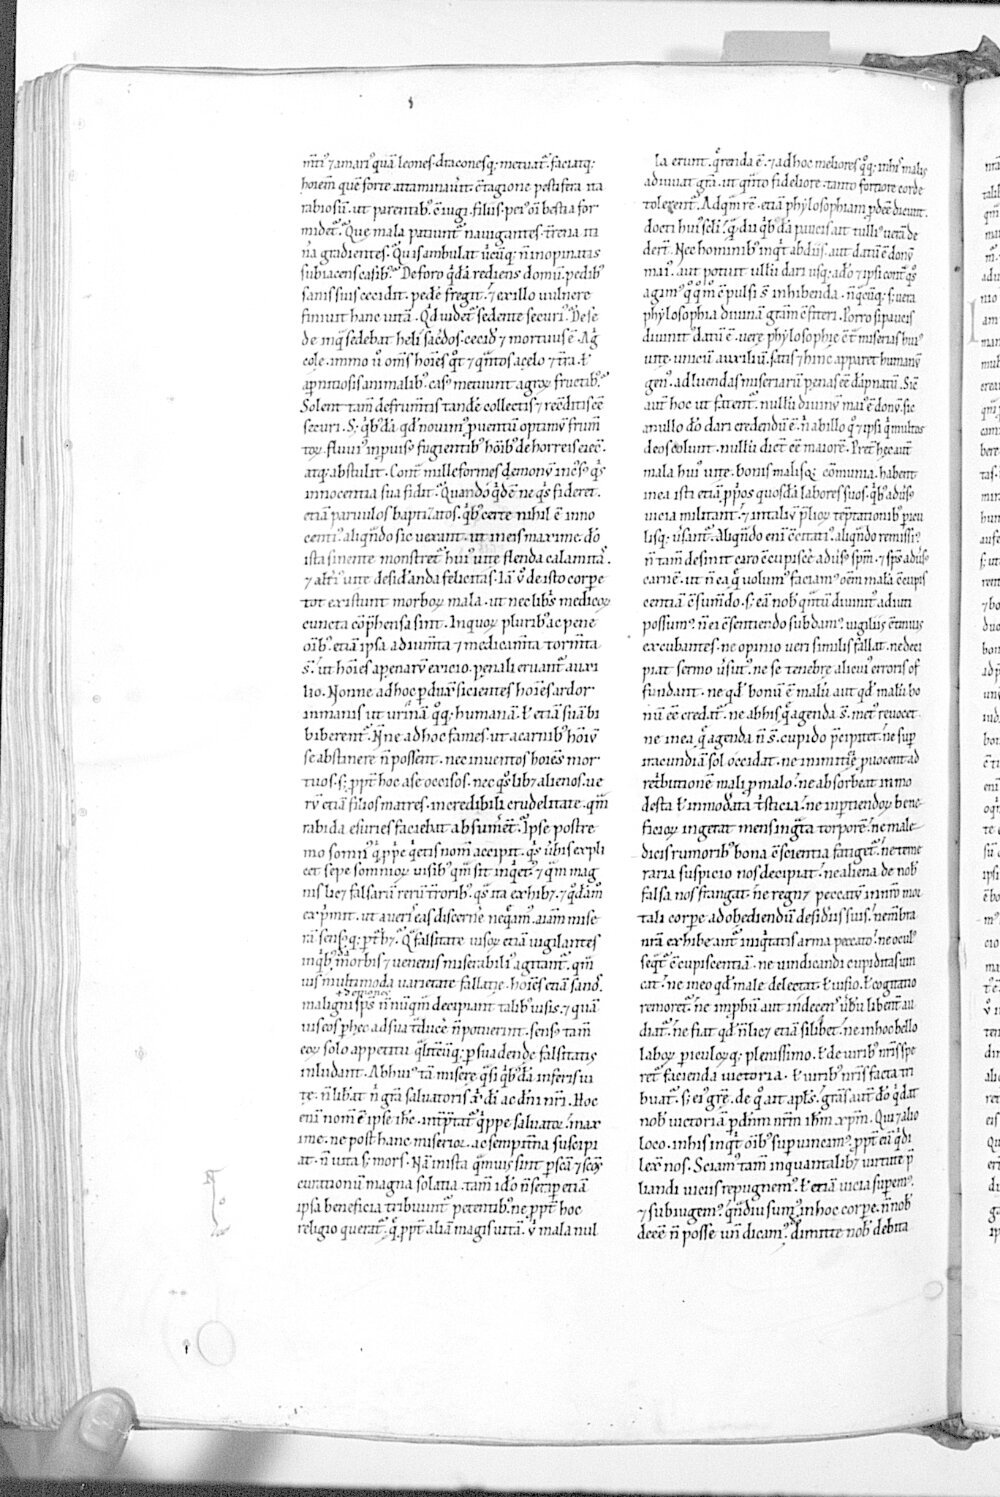 m̄tiꝰ ⁊ amariꝰ quā leones · draconesq; metuat᷑ · faciatq;
hoiem̄ quē forte attaminau̾it · c̄tagione pestifera ita
rabiosū · ut parentibꝰ c̄iugi · filiis · peiꝰ oī bestia for
midet᷑ · Que mala patiunt᷑ nauigantes · t̾rena iti
n̾a gradientes · Quis ambulat u̾cūq; n̄ inopinatis
subiacens casibꝰ · De foro q̾dā rediens domū · pedibꝰ
sanis suis cecidit · pedē fregit · ⁊ ex illo uulnere
finiuit hanc uitā · Q̾d uidet᷑ sedente securiꝰ · De se
de inq̾ sedebat heli sac̾dos · cecid̾ ⁊ mortuus ē · Ag̾
cole · immo u̾ om̄s hoīes q̾t ⁊ q̾ntos a celo ⁊ t̾ra · ł
a p̾nitiosis animalibꝰ casꝰ metuunt agroꝝ fructibꝰ
Solent tam̄ de frum̄tis tandē collectis ⁊ rec̄ditis ēē
securi · S; q̾bꝰdā qd̾ nouimꝰ puentū optimū frum̄
toꝝ · fluuiꝰ inpuisꝰ fugientibꝰ hōibꝰ de horreis eiec̄
atq; abstulit · Cont̾ milleformes demonū inc̾sꝰ q̾s
innocentia sua fidit · Quandoq̾dē ne q̾s fideret ·
etiā paruulos baptizatos · q̾bꝰ certe nihil ē inno
centiꝰ aliq̾ndo sic uexant · ut in eis maxime d̄o
ista sinente monstret᷑ huiꝰ uite flenda calamitas ·
⁊ alt̾iꝰ uite desid̾anda felicitas · Iā u̾ de isto corpe
tot existunt morboꝝ mala · ut nec libris medicoꝝ
cuncta cōp̾hensa sint · In quoꝝ pluribꝰ ac pene
oībꝰ etiā ipsa adium̄ta ⁊ medicam̄ta torm̄ta
s̄ · ut hoīes a penarū exicio · penali eruant᷑ auxi
lio · Nonne ad hoc pduxit sicientes hoīes ardor
inmanis ut urinā q̾q; humanā · ł etiā suā bi
biberent᷑ · N̄ne ad hoc fames · ut a carnibꝰ hōiū
se abstinere n̄ possent · nec inuentos hoīes mor
tuos · s; ppt̾ hoc a se occisos · nec q̾slib; alienos · ue
rū etiā filios matres · incredibili crudelitate · q̄m
rabida esuries faciebat absum̄et᷑ · Ipse postre
mo somnꝰ q̾ ppe q̾etis nom̄ accepit · q̾s u̾bis expli
cet sepe somnioꝝ uisibꝰ q̄m sit inq̾etꝰ · ⁊ q̄m mag
nis lic; falsarū rerū t̾roribꝰ · q̾s ita exhib; · ⁊ q̾dāmᵒ
exp̾mit · ut a ueris eas discern̾e neq̾amꝰ · aīam mise
rā sensꝰq; pt̾b; · Q̾ falsitate uisoꝝ etiā vigilantes
in q̾bꝰdā morbis ⁊ uenenis miserabiliꝰ agitant᷑ · q̄m
uis multimoda uarietate fallatie · hoīes etiā sanos
⁊ demones
maligni sp̄s n̄ nūq̄m decipiant talibꝰ uisis · ⁊ quā
uis eos p hec ad sua t̾duc̾e n̄ potuerint · sensꝰ tam̄
eoꝝ solo appetitu q̾litcūq; psuadende falsitatis
inludant · Ab huiꝰ tā misere q̾si q̾bꝰdā inferis ui
te · n̄ lib̾at n̾ gr̄a saluatoris xp̄i · dī ac dn̄i nr̄i · Hoc
eni nom̄ ē ipse ih̄c · int̾p̾tat᷑ q̾ppe saluator · max
ime · ne post hanc miserior · ac sempit̾na suscipi
at · n̄ uita s; mors · Nā in ista q̄muis sint p scā ⁊ scōs
curationū magna solatia · tam̄ id̄o n̄ semp etiā
ipsa beneficia tribuunt᷑ petentibꝰ · ne ppt̾ hoc
religio querat᷑ · q̾ ppt̾ aliā magis uitā · u̾ mala nul
la erunt · q̾renda ē · ⁊ ad hoc meliores q̾q; in hiis malis
adiuuat gr̄a · ut q̾nto fideliore · tanto fortiore corde
tolerent᷑ · Ad q̄m rē · etiā phylosophiam pdēē dicunt ·
docti huiꝰ sc̄li · q̾ dii q̾bꝰdā paucis · ait tulliꝰ uerā de
dert̄ · Nec hominibꝰ inq̾t ab diis · aut datū ē donū
maiꝰ · aut potuit ullū dari · usq; ad̄o ⁊ ipsi cont̾ q̾s
agimꝰ q̾q̾ m̄ c̄pulsi s̄ in habenda · n̄ q̾cūq; s; uera
phylosophia diuinā gratiā c̄fiteri · Porro si paucis
diuinitꝰ datū ē · uere phylosophie c̄t̾ miserias huiꝰ
uite · unicū auxiliū · satis ⁊ hinc apparet humanū
genꝰ · ad luendas miseriarū penas eē dāpnatū · Sic̄
aut̄ hoc ut fatent᷑ · nullū diuinū maiꝰ ē donū · sic
a nullo d̄o dari credendū ē · n̄ ab illo q̾ ⁊ ipsi q̾ multos
deos colunt · nullū dic̄t eē maiorē · Pret̾ hec aut̄
mala huiꝰ uite · bonis malisq; cōmunia · habent
in ea iusti etiā p̾pos quosdā labores suos · q̾bꝰ adu̾sꝰ
uicia militant · ⁊ in taliū p̾lioꝝ teptationibꝰ pícu
lisq; u̾sant᷑ · Aliq̾ndo eni c̄citatiꝰ aliq̾ndo remissiꝰ
n̄ tam̄ desinit caro c̄cupisc̾e adu̾sꝰ sp̄m · ⁊ sp̄s adu̾sꝰ
carnē · ut n̄ ea q̾ uolumꝰ faciamꝰ oēm malā c̄cupis
centiā c̄sum̄do · s; eā nobꝰ q̄ntū diuinitꝰ adiuti
possumꝰ n̄ ei c̄sentiendo subdamꝰ · uigiliis c̄tinuis
excubantes · ne opinio ueri similis fallat · ne deci
piat sermo u̾sutꝰ · ne se tenebre alicuiꝰ erroris of
fundant · ne qd̾ bonū ē malū aut qd̾ malū bo
nū eē credat᷑ · ne ab his q̾ agenda s̄ · metꝰ reuocet ·
ne in ea q̾ agenda n̄ s̄ · cupido p̾cipitet · ne sup
iracundiā sol occidat · ne inimicitie puocent ad
ret̾butionē mali p malo · ne absorbeat inmo
desta ł inmod̾ata t̾sticia · ne inptiendoꝝ bene
ficioꝝ ingerat mens ingrata torporē · ne male
dicis rumoribꝰ bona c̄scientia fatiget᷑ · ne teme
raria suspicio nos decipiat · ne aliena de nobꝰ
falsa nos frangat · ne regn; peccatū in nr̄o mor
tali corpe ad obediendū desid̾iis suis · ne m̄bra
nr̄a exhibeant᷑ iniq̾tatis arma peccato · ne oculꝰ
seq̾t᷑ c̄cupiscentiā · ne uindicandi cupiditas uin
cat · ne in eo qd̾ male delectat · ł uisio · ł cogitatio
remoret᷑ · ne imp̾bū aut indecens u̾bū libent̾ au
diat᷑ · ne fiat qd̾ n̄ lic; etiā si libet · ne in hoc bello
laboꝝ piculoꝝq; plenissimo · ł de uiribꝰ nr̄is spe
ret᷑ facienda uictoria · ł uiribꝰ nr̄is facta tri
buat᷑ · s; eiꝰ gr̄e · de q̾ ait apl̄s · gr̄as aut̄ dō q̾ dat
nobꝰ uictoriā p dn̄m nr̄m ih̄m xp̄m · Qui ⁊ alio
loco · in his inq̾t oībꝰ supuincimꝰ · ppt̾ eū q̾ di
lexit nos · Sciamꝰ tam̄ in quantalib; uirtute p̾
liandi uiciis repugnemꝰ · ł etiā uicia supemꝰ ·
⁊ subiugemꝰ · q̾ndiu sumꝰ in hoc corpe · n̄ nobꝰ
deēē n̄ posse un̄ dicamꝰ · dimitte nobꝰ debita